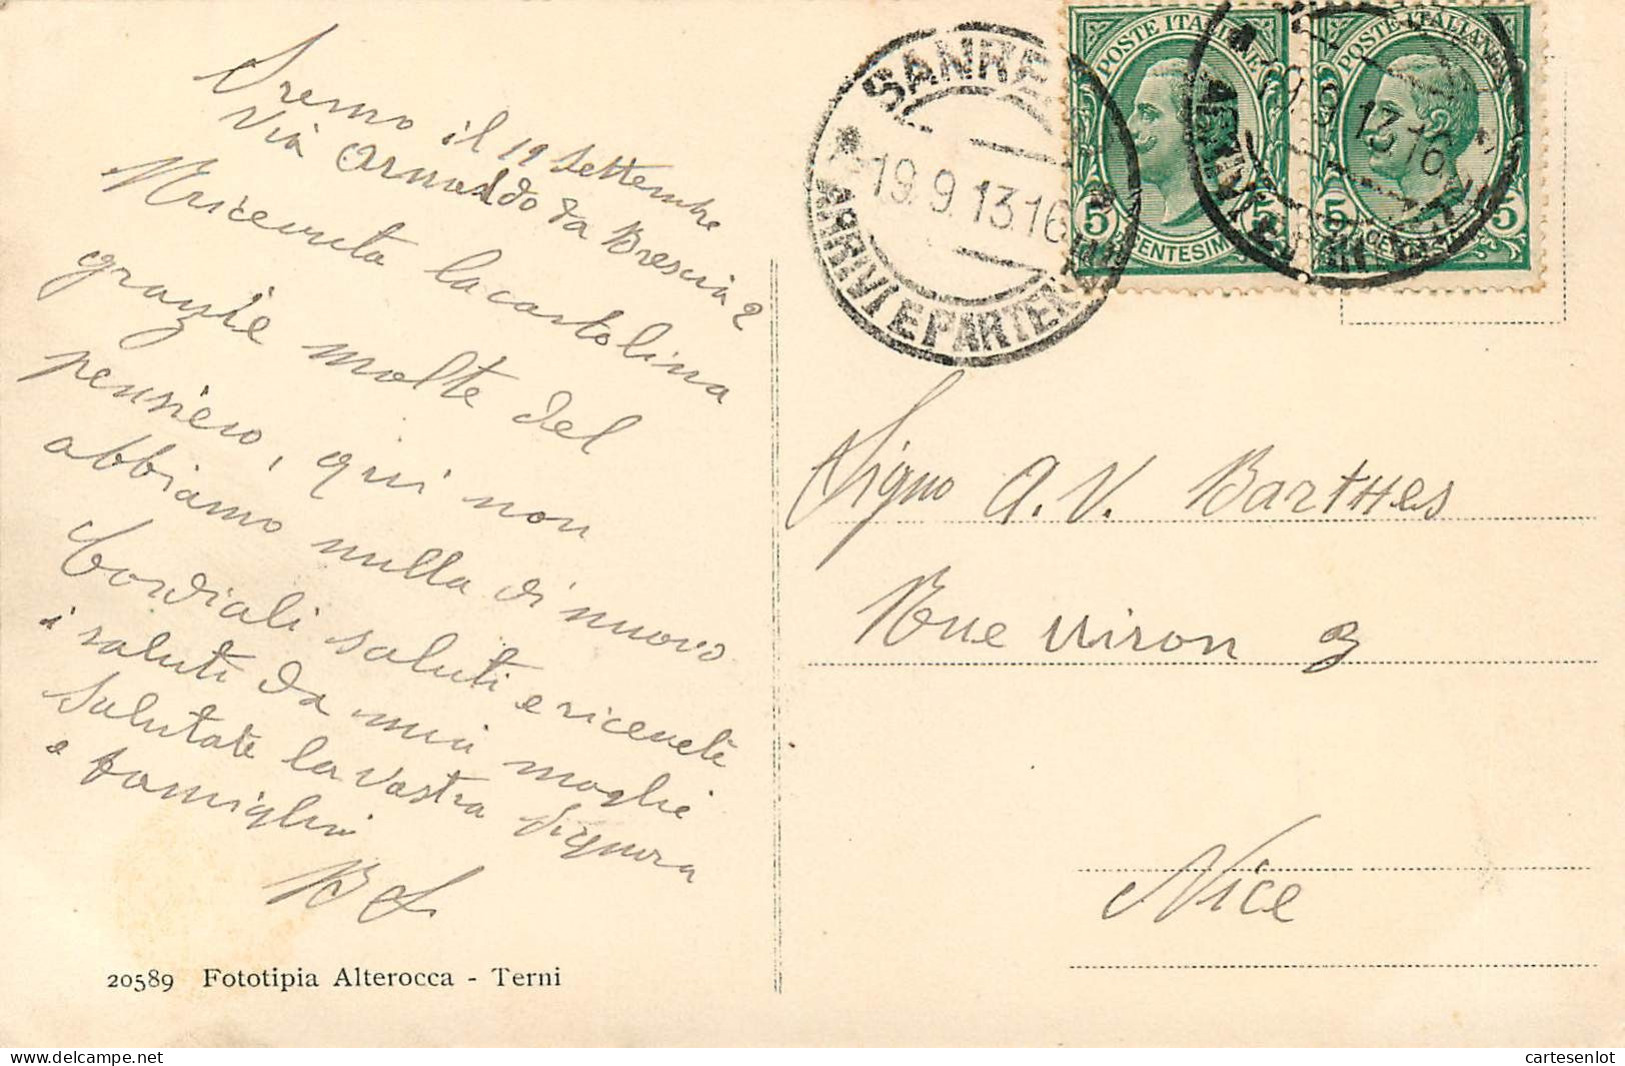 Sremo il 19 Settembre
Via Arnaldo da Brescia 2
Ricevuta la cartolina
grazie molte del
pensiero, qui non
abbiamo nulla di nuovo
Cordiali saluti e ricevete
i saluti da mia moglie
Salutate la vostra Signora
e famiglia
SANRE
19.9.13.16
ARRIVI E PARTENZE
POSTE ITALIANE
5 CENTESIMI 5
19.9.13.16
ARRIVI E PARTENZE
POSTE ITALIANE
5 CENTESIMI 5
Signo A. V. Barthes
Rue Viron 3
Nice
20589 Fototipia Alterocca - Terni
https://www.delcampe.net
cartesenlot